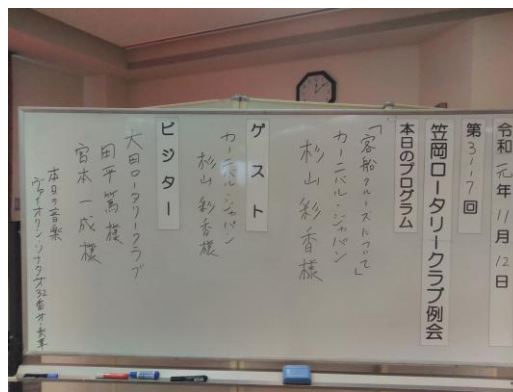 令和元年11月12日
第3117回
笠岡ロータリークラブ例会
本日のプログラム
「客船クルーズについて」
カーニバル・ジャパン
杉山彩香様
ゲスト
カーニバル・ジャパン
杉山彩香様
ビジター
大田ロータリークラブ
田平篤様
宮本一成様
本日の音楽
ヴァイオリン・ソナタ